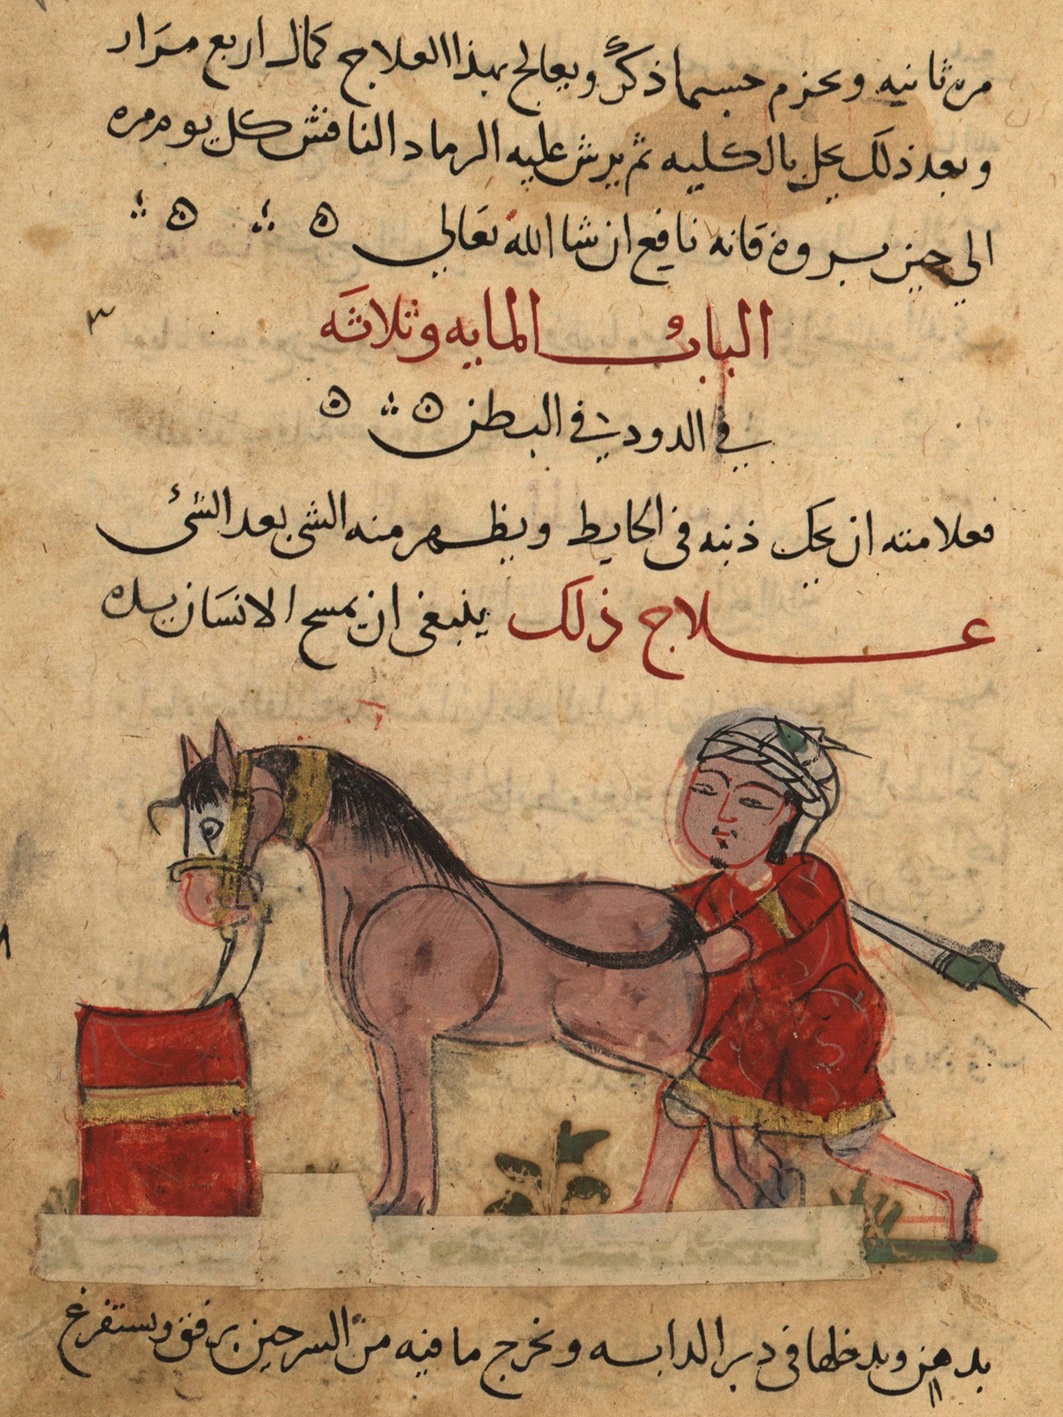 مره ثانيه ويحزم حسبما ذكر ويعالج بهذا العلاج كمال اربع مرار
وبعد ذلك يحل بالكليه ثم يرش عليه الرماد النافش كل يوم مره
الي حين بروه فانه نافع ان شا الله تعالي
الباب المايه وثلاثه
٣
في الدود في البطن
فعلامته ان يحك ذنبه في الحايط ويظهر منه الشي بعد الشئ
علاج ذلك ينبغي ان يمسح الانسان يده
بدهن ويدخلها في دبر الدابه ويخرج ما فيه من السرجين برفق ويستفرغ